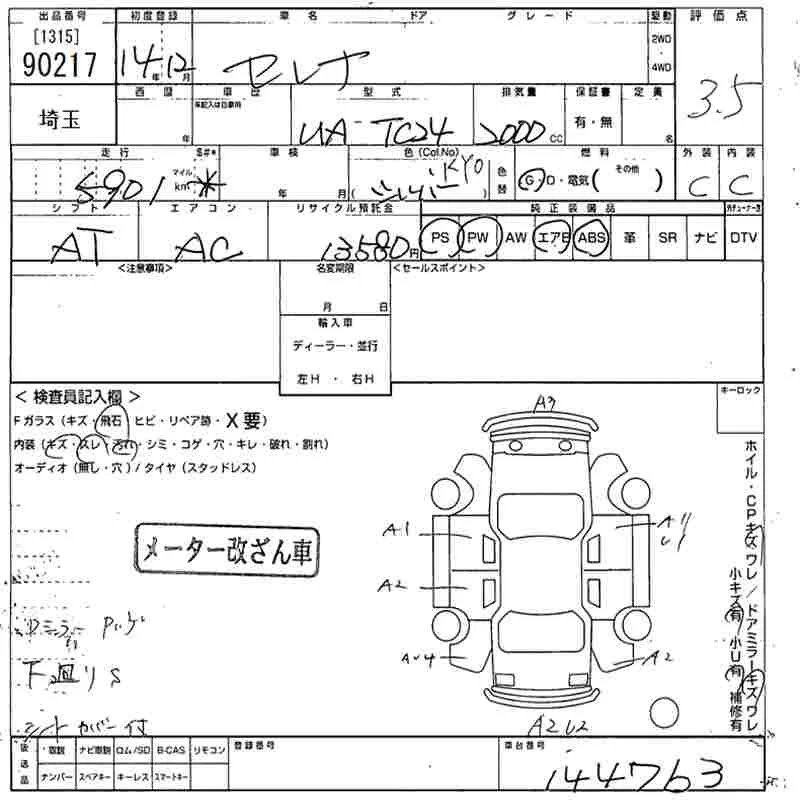 出品番号 初度登録 車名 ドア グレード 駆動 評価点
[1315]
90217 14年12月 セレナ 2WD・4WD 3.5
埼玉 西暦 年 車歴 年記入は自家用 型式 排気量 保証書 定員
UA-TC24 2000 CC 有・無 名
走行 S#* 車検 色(Col.No) 色替 燃料 外装 内装
5901 マイル km * 年 月 (シルバー KY0) G・D・電気( その他 ) C C
シフト エアコン リサイクル預託金 純正装備品
AT AC 13580円 PS PW AW エアB ABS 革 SR ナビ DTV
<注意事項> 名変期限 <セールスポイント>
月 日
輸入車
ディーラー・並行
左H ・ 右H
<検査員記入欄> キーロック
Fガラス(キズ・飛石 ヒビ・リペア跡・X要)
内装(キズ・スレ・汚れ・シミ・コゲ・穴・キレ・破れ・割れ)
オーディオ(無し・穴)/タイヤ(スタッドレス)
A3
A1 A2
メーター改ざん車
下廻りS
シートカバー付
A2 U2
ホイル・CPキズワレ/ドアミラーキズワレ
小キズ有 小U有 補修有
後送品 取説 ナビ取説 ロム/SD B-CAS リモコン 登録番号 車台番号
ナンバー スペアキー キーレス スマートキー 144763